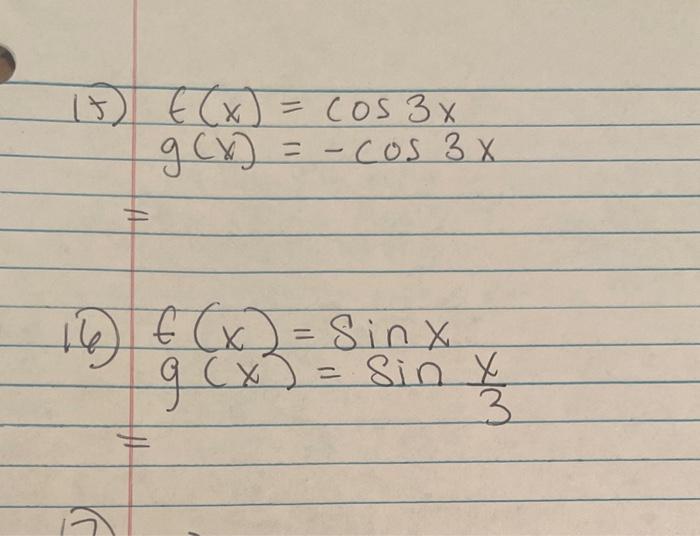 15) f(x) = cos 3x
g(x) = -cos 3x
=
16) f(x) = sin x
g(x) = sin x/3
=
17)